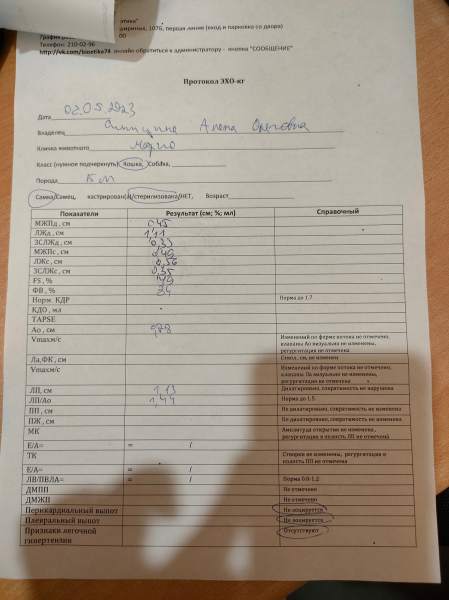 этика"
107Б, первая линия (вход и парковка со двора)
График ра 00
Телефон: 210-02-96
http://vk.com/bioetika74 онлайн обратиться к администратору - кнопка "СООБЩЕНИЕ"
Протокол ЭХО-кг
Дата
Владелец Алена Олеговна
Кличка животного
Класс (нужное подчеркнуть) Кошка, Собака,
Порода
Самка/Самец, кастрирован(а)/стерилизована/НЕТ, Возраст
Показатели Результат (см; %; мл) Справочный
МЖПд, см 0,45
ЛЖд, см 1,11
ЗСЛЖд, см
МЖПс, см
ЛЖс, см 0,56
ЗСЛЖс, см 0,35
FS, %
ФВ, %
Норм. КДР Норма до 1.7
КДО, мл
TAPSE
Ао, см
Vmaxм/с Изменений по форме потока не отмечено, клапаны Ао визуально не изменены, регургитация не отмечена
Ла,ФК, см Ствол, см, не изменен
Vmaxм/с Изменений по форме потока не отмечено, клапаны Ла визуально не изменены, регургитация не отмечена
ЛП, см 1,13 сократимость не нарушена
ЛП/Ао 1,44 Норма до 1.5
ПП, см Не дилатировано, сократимость не изменена
ПЖ, см Не дилатировано, сократимость не изменена
МК Амплитуда открытия не изменена, регургитация в полость ЛП не отмечена
Е/А= = /
ТК Створки не изменены, регургитация в полость ПП не отмечена
Е/А= = /
ЛВ/ПВЛА= = / Норма 0.8-1.2
ДМПП Не отмечено
ДМЖП Не отмечено
Перикардиальный выпот Не лоцируется
Плевральный выпот Не лоцируется
Признаки легочной гипертензии Отсутствуют